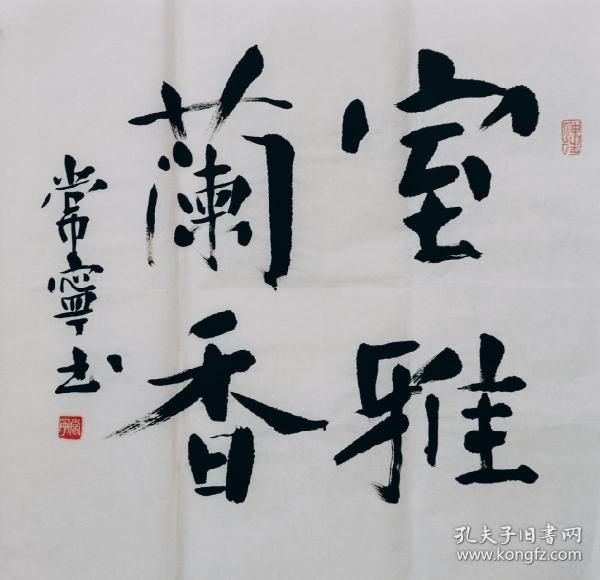 室雅
蘭香
常寧书
孔夫子旧书网
www.kongfz.com